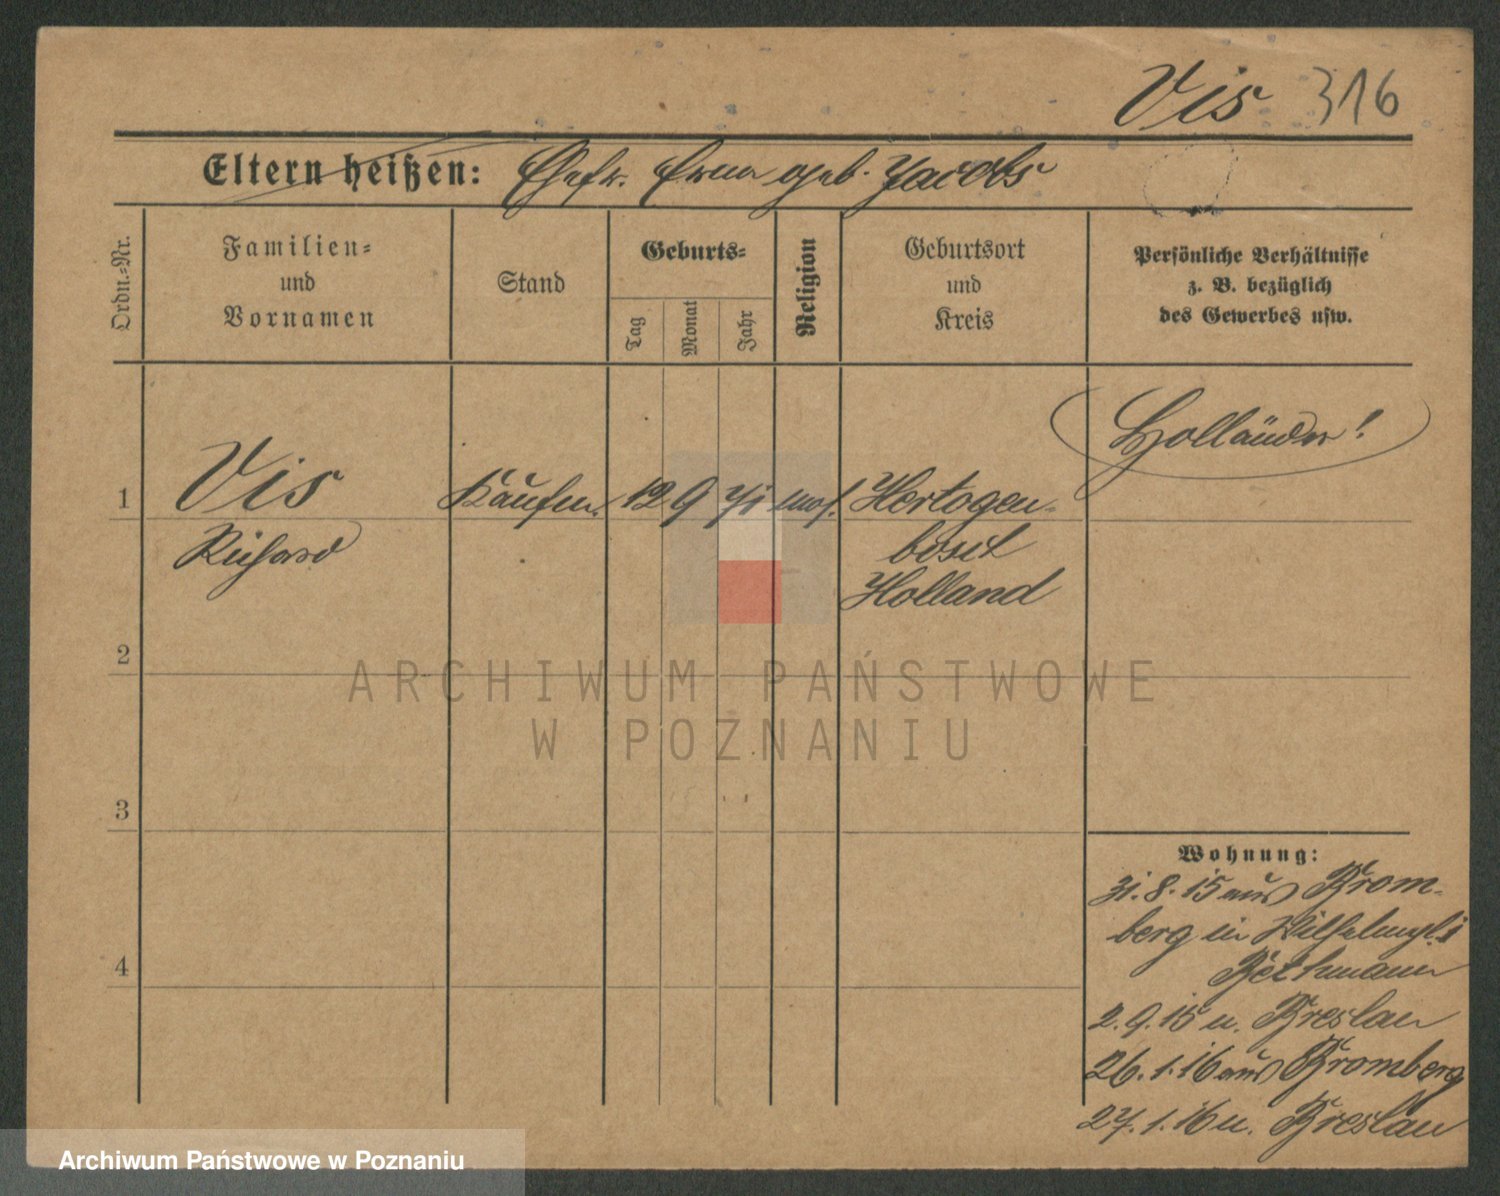 Vis 316
Eltern heißen: Ehefr. Erna geb. Jacobs
Ordn.=Nr.
Familien=
und
Vornamen
Stand
Geburts=
Tag
Monat
Jahr
Religion
Geburtsort
und
Kreis
Persönliche Verhältnisse
z. B. bezüglich
des Gewerbes usw.
Holländer!
1 Vis Kaufm. 12 9 71 mos. Hertogen-
Richard
bosch
Holland
2
3
4
ARCHIWUM PAŃSTWOWE
W POZNANIU
Wohnung:
31.8.15 aus Brom-
berg in
Bethmann
2.9.15 n. Breslau
26.1.16 aus Bromberg
27.1.16 n. Breslau
Archiwum Państwowe w Poznaniu